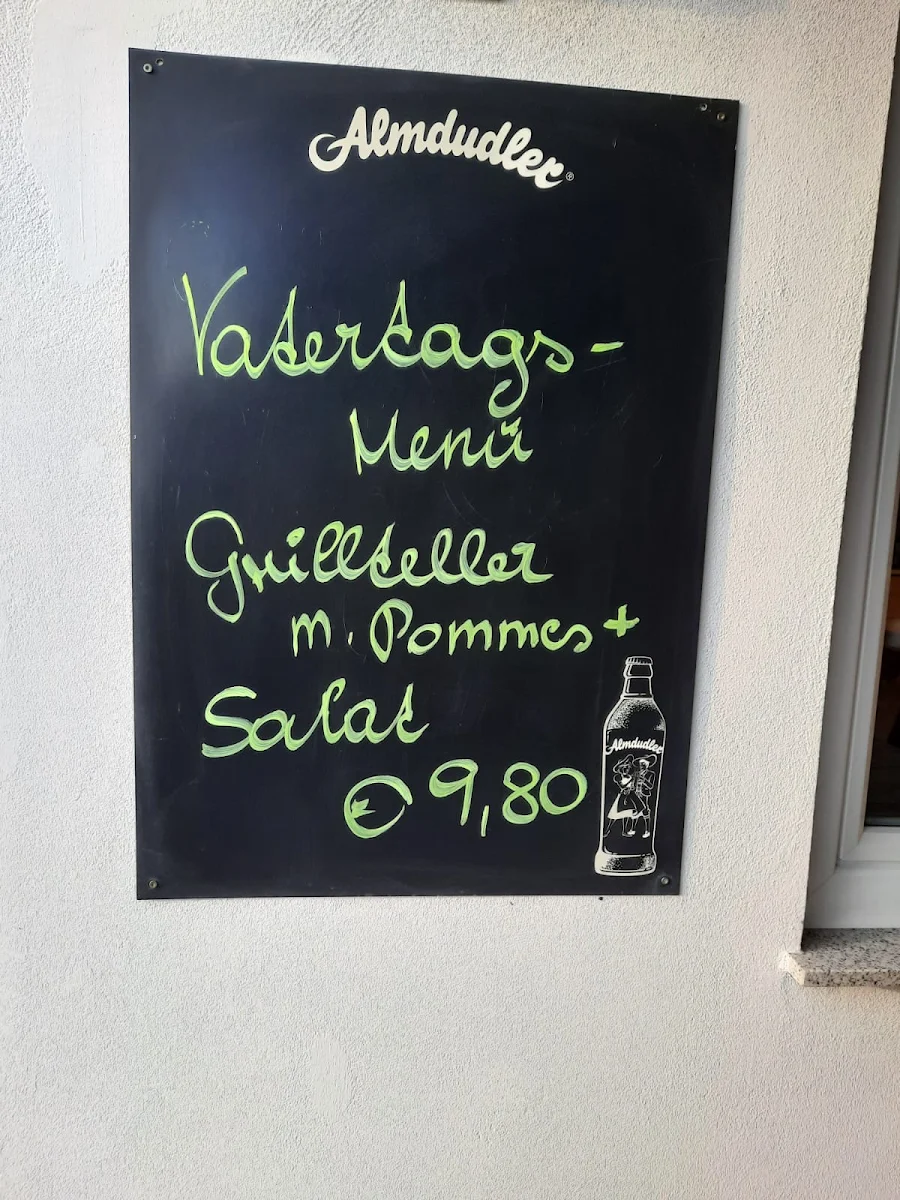 Almdudler®
Vatertags-
Menü
Grillteller
m. Pommes +
Salat
€ 9,80
Almdudler